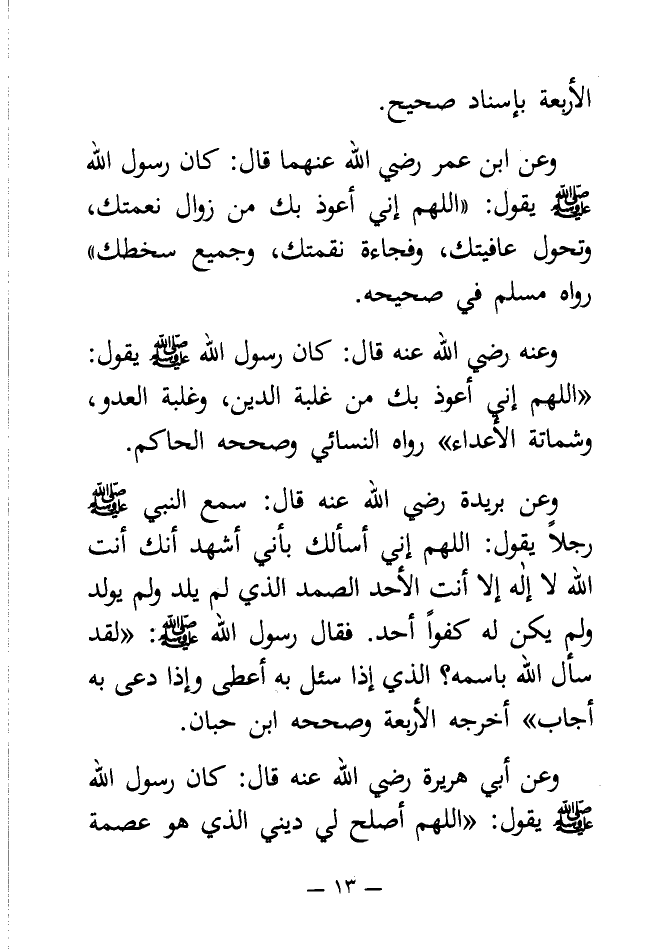 الأربعة بإسناد صحيح.
وعن ابن عمر رضي الله عنهما قال: كان رسول الله
ﷺ يقول: «اللهم إني أعوذ بك من زوال نعمتك،
وتحول عافيتك، وفجاءة نقمتك، وجميع سخطك»
رواه مسلم في صحيحه.
وعنه رضي الله عنه قال: كان رسول الله ﷺ يقول:
«اللهم إني أعوذ بك من غلبة الدين، وغلبة العدو،
وشماتة الأعداء» رواه النسائي وصححه الحاكم.
وعن بريدة رضي الله عنه قال: سمع النبي ﷺ
رجلاً يقول: اللهم إني أسألك بأني أشهد أنك أنت
الله لا إلٰه إلا أنت الأحد الصمد الذي لم يلد ولم يولد
ولم يكن له كفواً أحد. فقال رسول الله ﷺ: «لقد
سأل الله باسمه؟ الذي إذا سئل به أعطى وإذا دعى به
أجاب» أخرجه الأربعة وصححه ابن حبان.
وعن أبي هريرة رضي الله عنه قال: كان رسول الله
ﷺ يقول: «اللهم أصلح لي ديني الذي هو عصمة
– ١٣ –